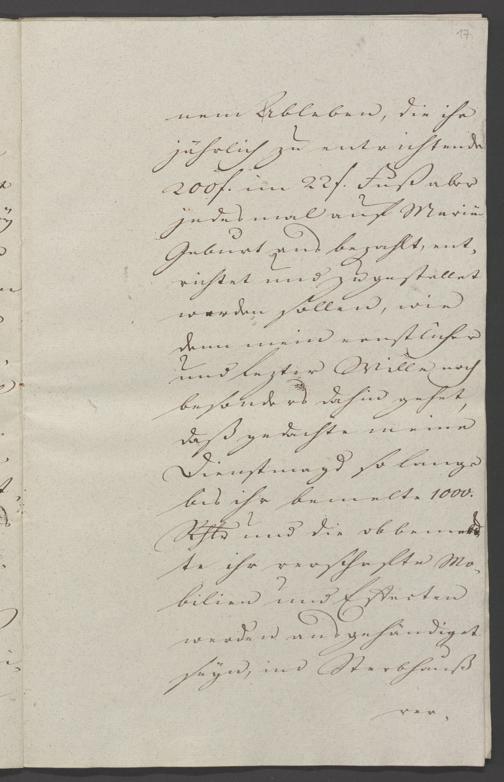 17.
nem Ableben, die ihr
jährlich zu entrichtende
200f. im 22f. Fuß aber
jedesmal auf Mariä
Geburt aus bezahlt, ent-
richtet und zugestellet
werden sollen, wie
dann mein ernstlicher
und lezter Wille noch
besonders dahin gehet,
daß gedachte meine
Dienstmagd so lange
bis ihr bemelte 1000.
und die obbemel-
te ihr verschafte Mo-
bilien und Effecten
werden ausgehändiget
seyn, im Sterbhauß
ver-